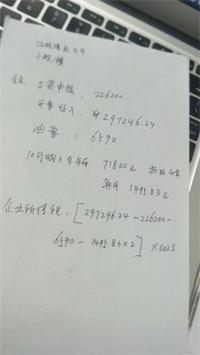 小规模
工资申报：226200
开票收入：297246.24
油票：6590
10月购入车辆 71800元，折旧4年
每月 1495.83元
企业所得税：[297246.24-226200-
6590-1495.83×2]×0.025